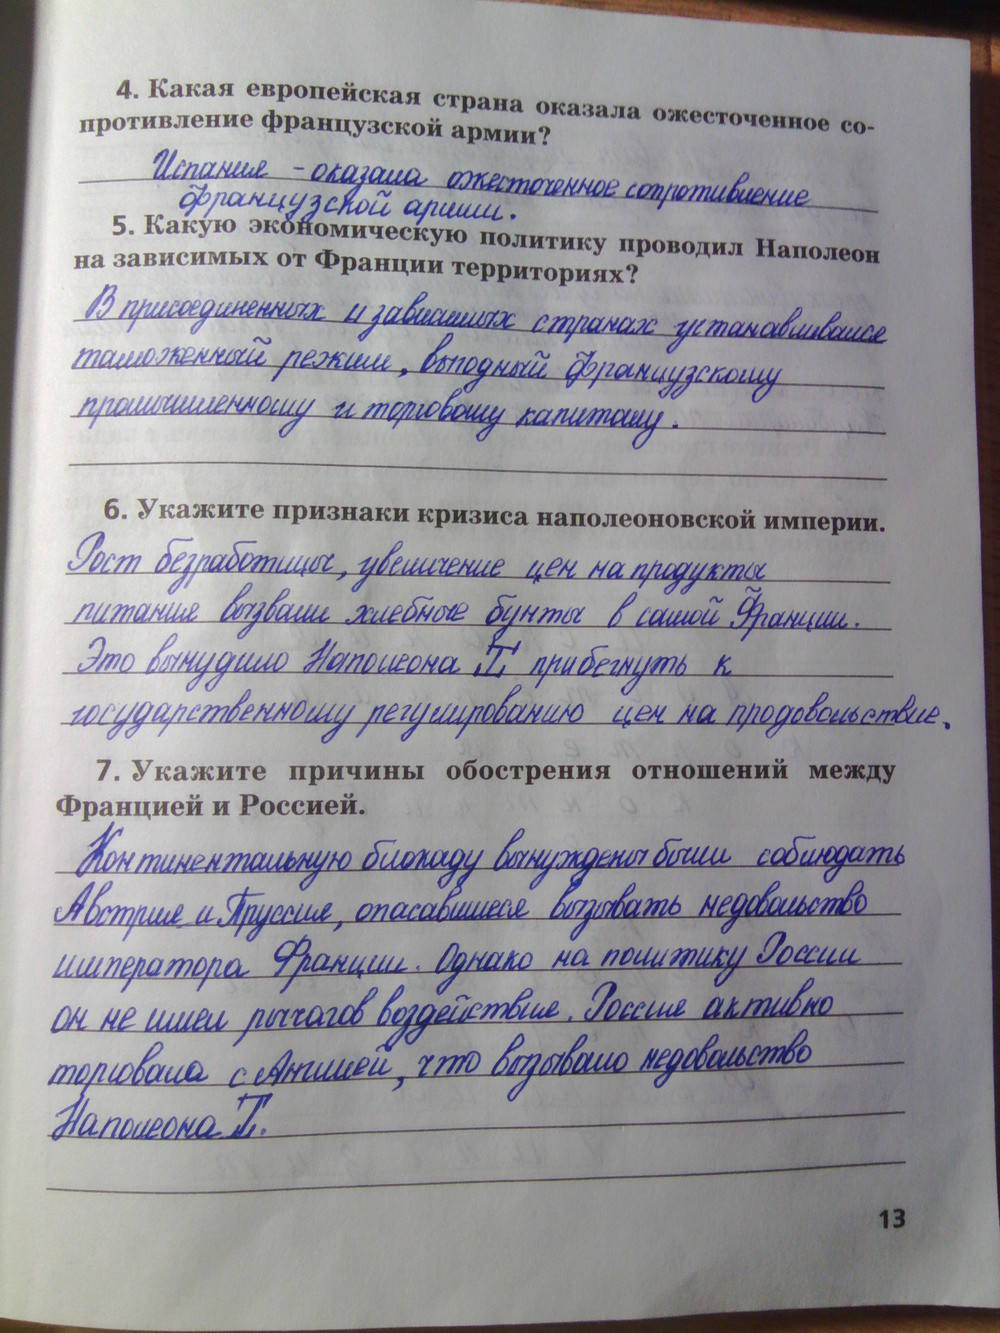 4. Какая европейская страна оказала ожесточенное со-
противление французской армии?
Испания - оказала ожесточенное сопротивление
французской армии.
5. Какую экономическую политику проводил Наполеон
на зависимых от Франции территориях?
В присоединенных и зависимых странах устанавливался
таможенный режим, выгодный французскому
промышленному и торговому капиталу.
6. Укажите признаки кризиса наполеоновской империи.
Рост безработицы, увеличение цен на продукты
питания вызвали хлебные бунты в самой Франции.
Это вынудило Наполеона I прибегнуть к
государственному регулированию цен на продовольствие.
7. Укажите причины обострения отношений между
Францией и Россией.
Континентальную блокаду вынуждены были соблюдать
Австрия и Пруссия, опасавшиеся вызывать недовольство
императора Франции. Однако на политику России
он не имел рычагов воздействия. Россия активно
торговала с Англией, что вызывало недовольство
Наполеона I.
13